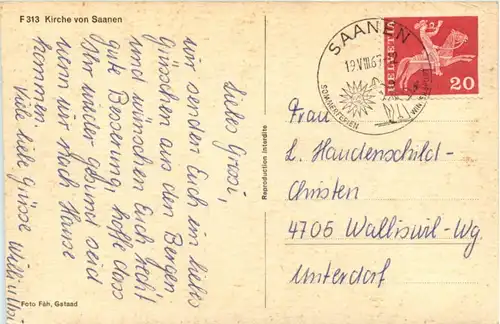 F 313 Kirche von Saanen
liebs Grosi,
wir senden Euch ein liebes
Grüsschen aus den Bergen
und wünschen Euch recht
gute Besserung, hoffe dass
Ihr wieder gesund seid
wenn wir nach Hause
kommen.
Viele liebe Grüsse Willi
Foto Fäh, Gstaad
Reproduction interdite
SAANEN
19.VIII.67
SOMMERFERIEN
HELVETIA
20
Frau
L. Haudenschild-
Christen
4705 Walliswil-Wg.
Unterdorf